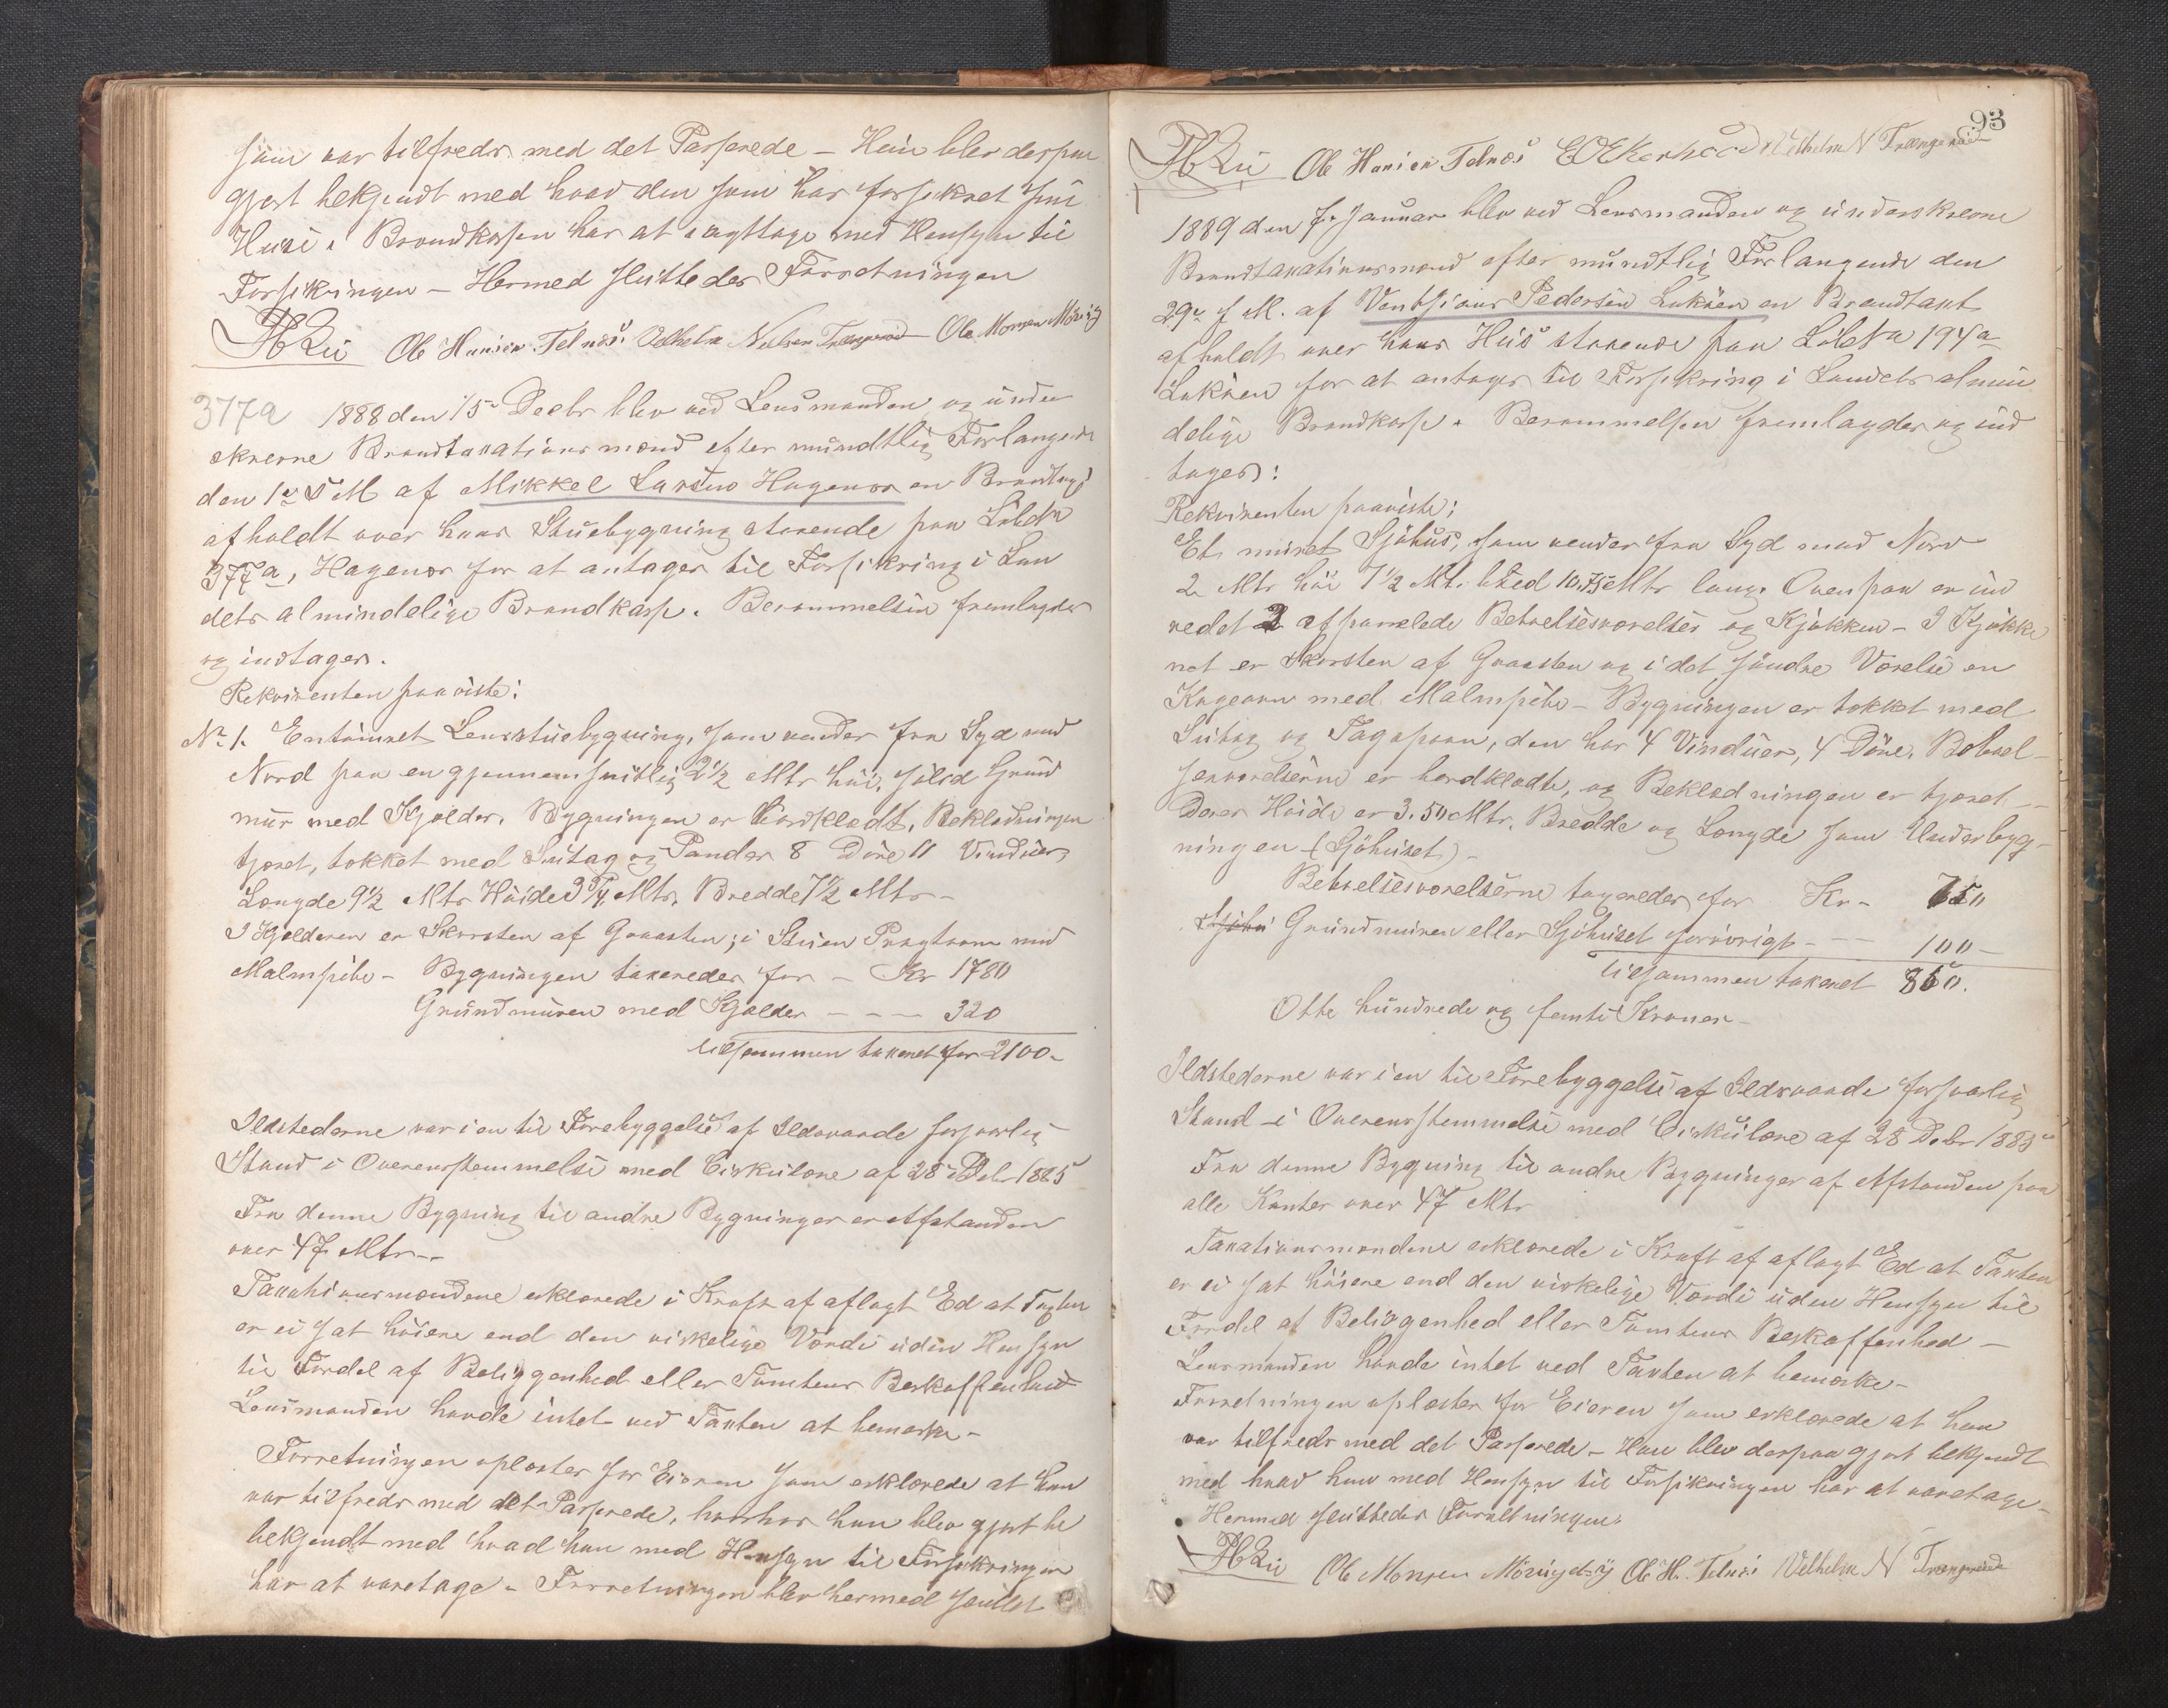 som var tilfreds med det Passerede – Hun blev derpaa
gjort bekjendt med hvad den som har forsikret sine
Huse i Brandkassen har at iagttage med Hensyn til
Forsikringen – Hermed sluttedes Forretningen
Ole Hansen Telnæs Vilhelm Nielsen Ole Monsen
377a 1888 den 15de Decbr blev ved Lensmanden og under
skrevne Brandtaxationsmænd efter mundtlig Forlangende
den 1ste d. M af Mikkel Larsen Hagenæs en Brandtaxt
afholdt over hans Stuebygning staaende paa Løbe No
377a, Hagenæs for at antages til Forsikring i Lan
dets almindelige Brandkasse. Berammelsen fremlagdes
og indtages.
Rekvirenten paaviste:
No 1. En tømret Lensstuebygning, som vender fra Syd mod
Nord paa en gjennemsnitlig 2 1/2 Mtr høi, solid Grund
mur med Kjelder. Bygningen er bordklædt, Beklædningen
tjæret, tækket med Sutag og Pander 8 Døre 11 Vinduer,
Længde 9 1/2 Mtr Høide 3 3/4 Mtr, Bredde 7 1/2 Mtr –
I Kjelderen er Skorsten af Graasten; i Stuen Pragtovn med
Malmpibe – Bygningen taxeredes for – Kr 1780
Grundmuren med Kjelder – – – 320
tilsammen taxeret for 2100 –
Ildstederne var i en til Forebyggelse af Ildsvaade forsvarlig
Stand i Overensstemmelse med Cirkulære af 28de Debr 1885
Fra denne Bygning til andre Bygninger er Afstanden
over 47 Mtr –
Taxationsmændene erklærede i Kraft af aflagt Ed at Taxten
er ei sat høiere end den virkelige Værdi uden Hensyn
til Fordel af Beliggenhed eller Tomtens Beskaffenhed
Lensmanden havde intet ved Taxten at bemærke –
Forretningen oplæstes for Eieren som erklærede at han
var tilfreds med det Passerede, hvorhos han blev gjort be
bekjendt med hvad han med Hensyn til Forsikringen
har at varetage – Forretningen blev hermed sluttet
93
Ole Hansen Telnæs Vilhelm N
1889 den 7. Januar blev ved Lensmanden og underskrevne
Brandtaxationsmænd efter mundtlig Forlangende den
29de f. M. af Pedersen Lukøen en Brandtaxt
afholdt over hans Hus staaende paa Løbe No 194a
Lukøen for at antages til Forsikring i Landets almin
delige Brandkasse. Berammelsen fremlagdes og ind
tages:
Rekvirenten paaviste:
Et muret Sjøhus, som vender fra Syd mod Nord
2 Mtr høi 7 1/2 Mt. bred 10,75 Mtr lang. Ovenpaa er ind
redet 2 afpanelede Beboelsesværelser og Kjøkken – I Kjøkke
net er Skorsten af Graasten og i det søndre Værelse en
Kogeovn med Malmpibe – Bygningen er tækket med
Sutag og Tagspaan, den har 4 Vinduer, 4 Døre, Beboel
sesværelserne er bordklædte, og Beklædningen er tjæret –
Deres Høide er 3.50 Mtr. Bredde og Længde som Underbyg
ningen (Sjøhuset) –
Beboelsesværelserne taxeredes for Kr – 750
Sjøhu Grundmuren eller Sjøhuset forøvrigt – – 100 –
tilsammen taxeret 850.
Otte hundrede og femti Kroner –
Ildstederne var i en til Forebyggelse af Ildsvaade forsvarlig
Stand – i Overensstemmelse med Cirkulære af 28 Debr 1883
Fra denne Bygning til andre Bygninger af Afstanden paa
alle Kanter over 47 Mtr
Taxationsmændene erklærede i Kraft af aflagt Ed at Taxten
er ei sat høiere end den virkelige Værdi uden Hensyn til
Fordel af Beliggenhed eller Tomtens Beskaffenhed –
Lensmanden havde intet ved Taxten at bemærke –
Forretningen oplæstes for Eieren som erklærede at han
var tilfreds med det Passerede – Han blev derpaa gjort bekjendt
med hvad han med Hensyn til Forsikringen har at varetage –
Hermed sluttedes Forretningen.
Ole Monsen Ole H. Telnæs Vilhelm N